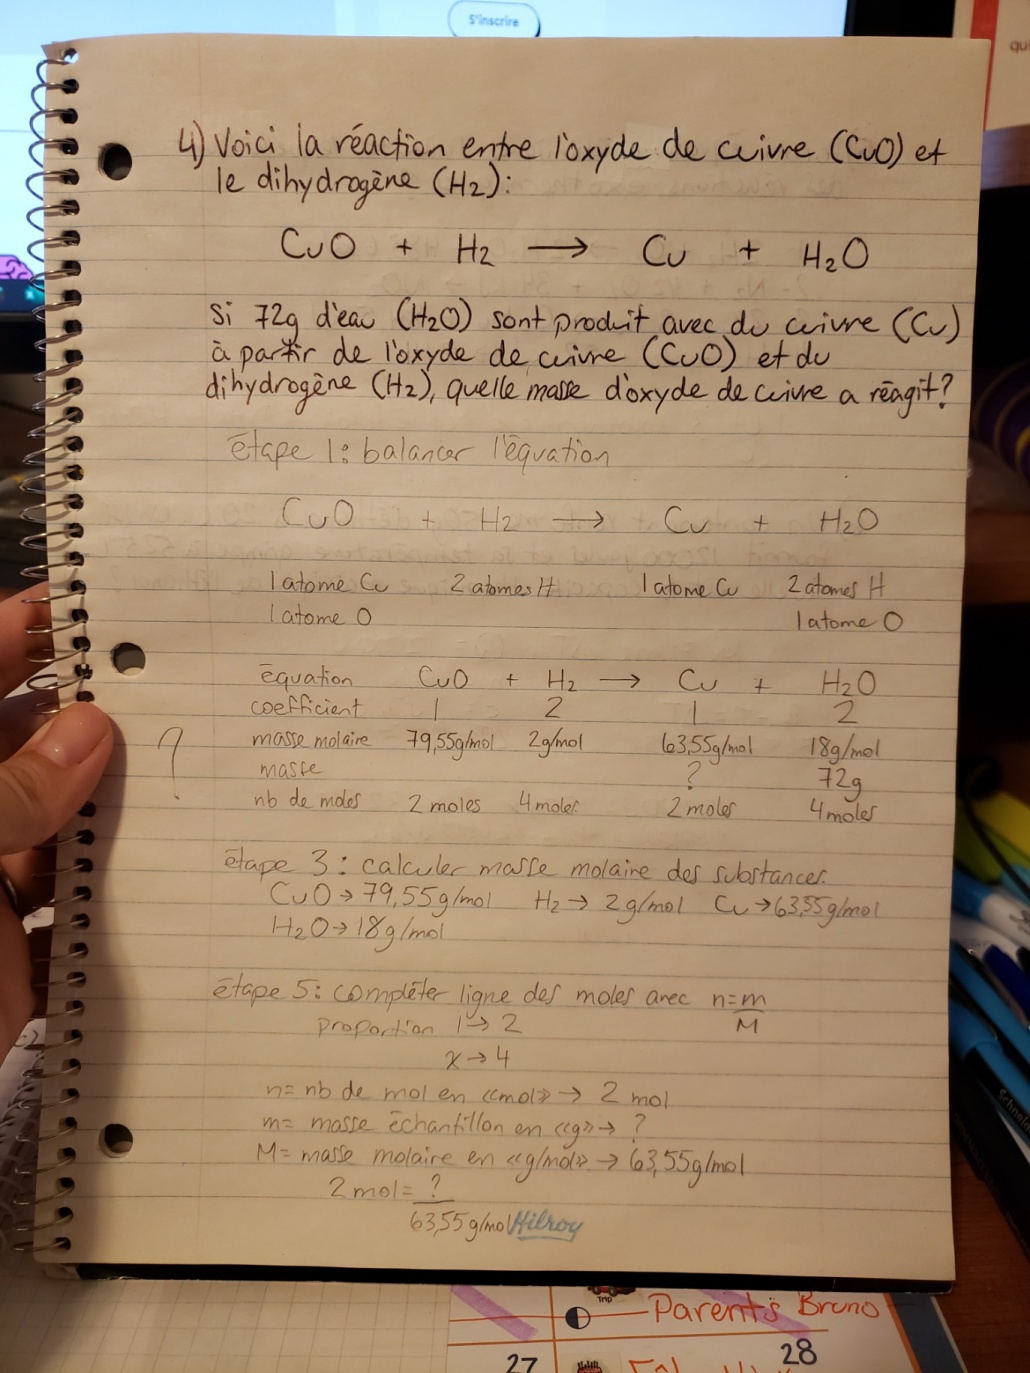 S'inscrire
qui
4) Voici la réaction entre l'oxyde de cuivre (CuO) et
le dihydrogène (H2):
CuO + H2 → Cu + H2O
Si 72g d'eau (H2O) sont produit avec du cuivre (Cu)
à partir de l'oxyde de cuivre (CuO) et du
dihydrogène (H2), quelle masse d'oxyde de cuivre a réagit?
étape 1: balancer l'équation
CuO + H2 → Cu + H2O
1 atome Cu 2 atomes H 1 atome Cu 2 atomes H
1 atome O 1 atome O
équation CuO + H2 → Cu + H2O
coefficient 1 2 1 2
masse molaire 79,55g/mol 2g/mol 63,55g/mol 18g/mol
?
masse ? 72g
nb de moles 2 moles 4 moles 2 moles 4 moles
étape 3: calculer masse molaire des substances.
CuO → 79,55g/mol H2 → 2g/mol Cu → 63,55g/mol
H2O → 18g/mol
étape 5: compléter ligne des moles avec n=m/M
proportion 1 → 2
x → 4
n= nb de mol en «mol» → 2 mol
m= masse échantillon en «g» → ?
M= masse molaire en «g/mol» → 63,55g/mol
2 mol = ?
63,55g/mol
Hilroy
Trip
Parents Bruno
27
28
Schneid